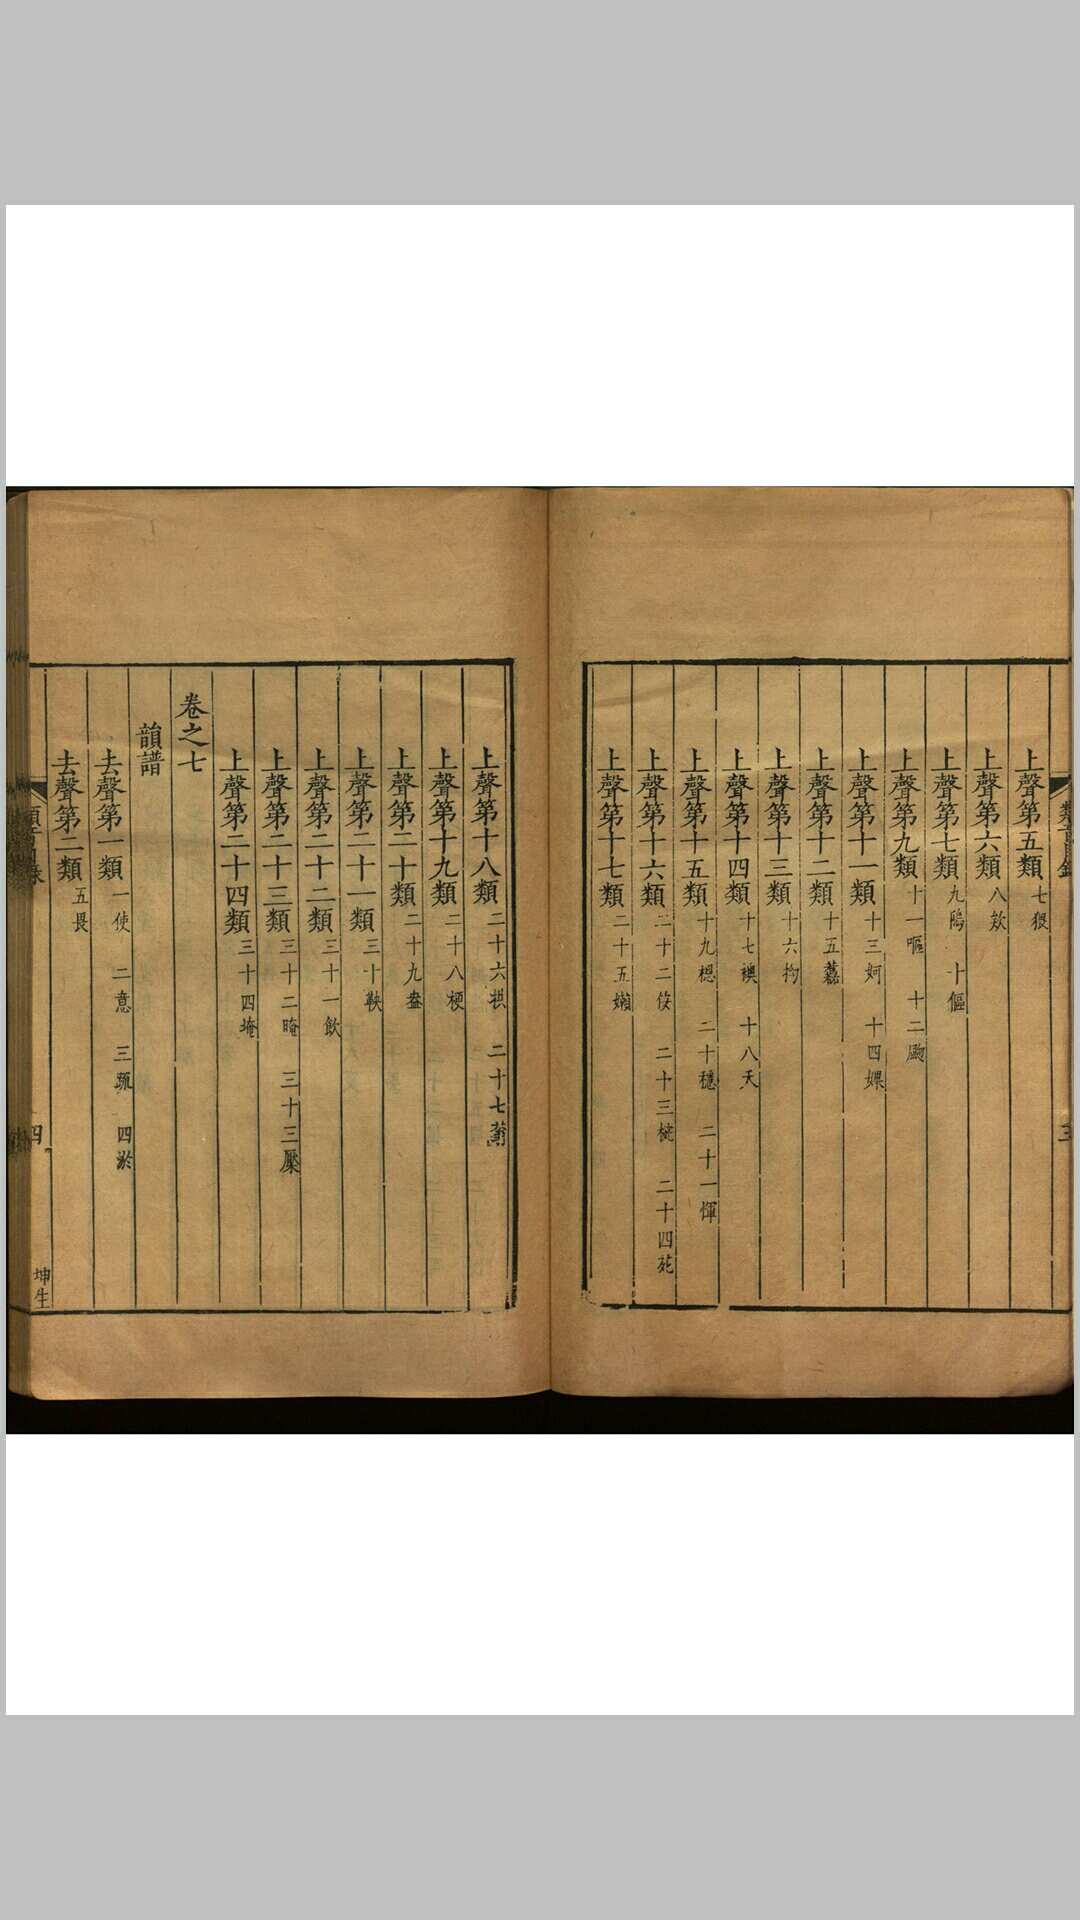 上聲第五類 七猥
上聲第六類 八欸
上聲第七類 九隝 十傴
上聲第九類 十一嘔 十二颲
上聲第十一類 十三妸 十四婐
上聲第十二類 十五藞
上聲第十三類 十六拘
上聲第十四類 十七襖 十八夭
上聲第十五類 十九 二十穩 二十一惲
上聲第十六類 二十二 二十三 二十四苑
上聲第十七類 二十五嬾
三
上聲第十八類 二十六拱 二十七蓊
上聲第十九類 二十八梗
上聲第二十類 二十九盎
上聲第二十一類 三十鞅
上聲第二十二類 三十一飲
上聲第二十三類 三十二晻 三十三黶
上聲第二十四類 三十四埯
卷之七
韻譜
去聲第一類 一使 二意 三疏 四淤
去聲第二類 五畏
四
坤生